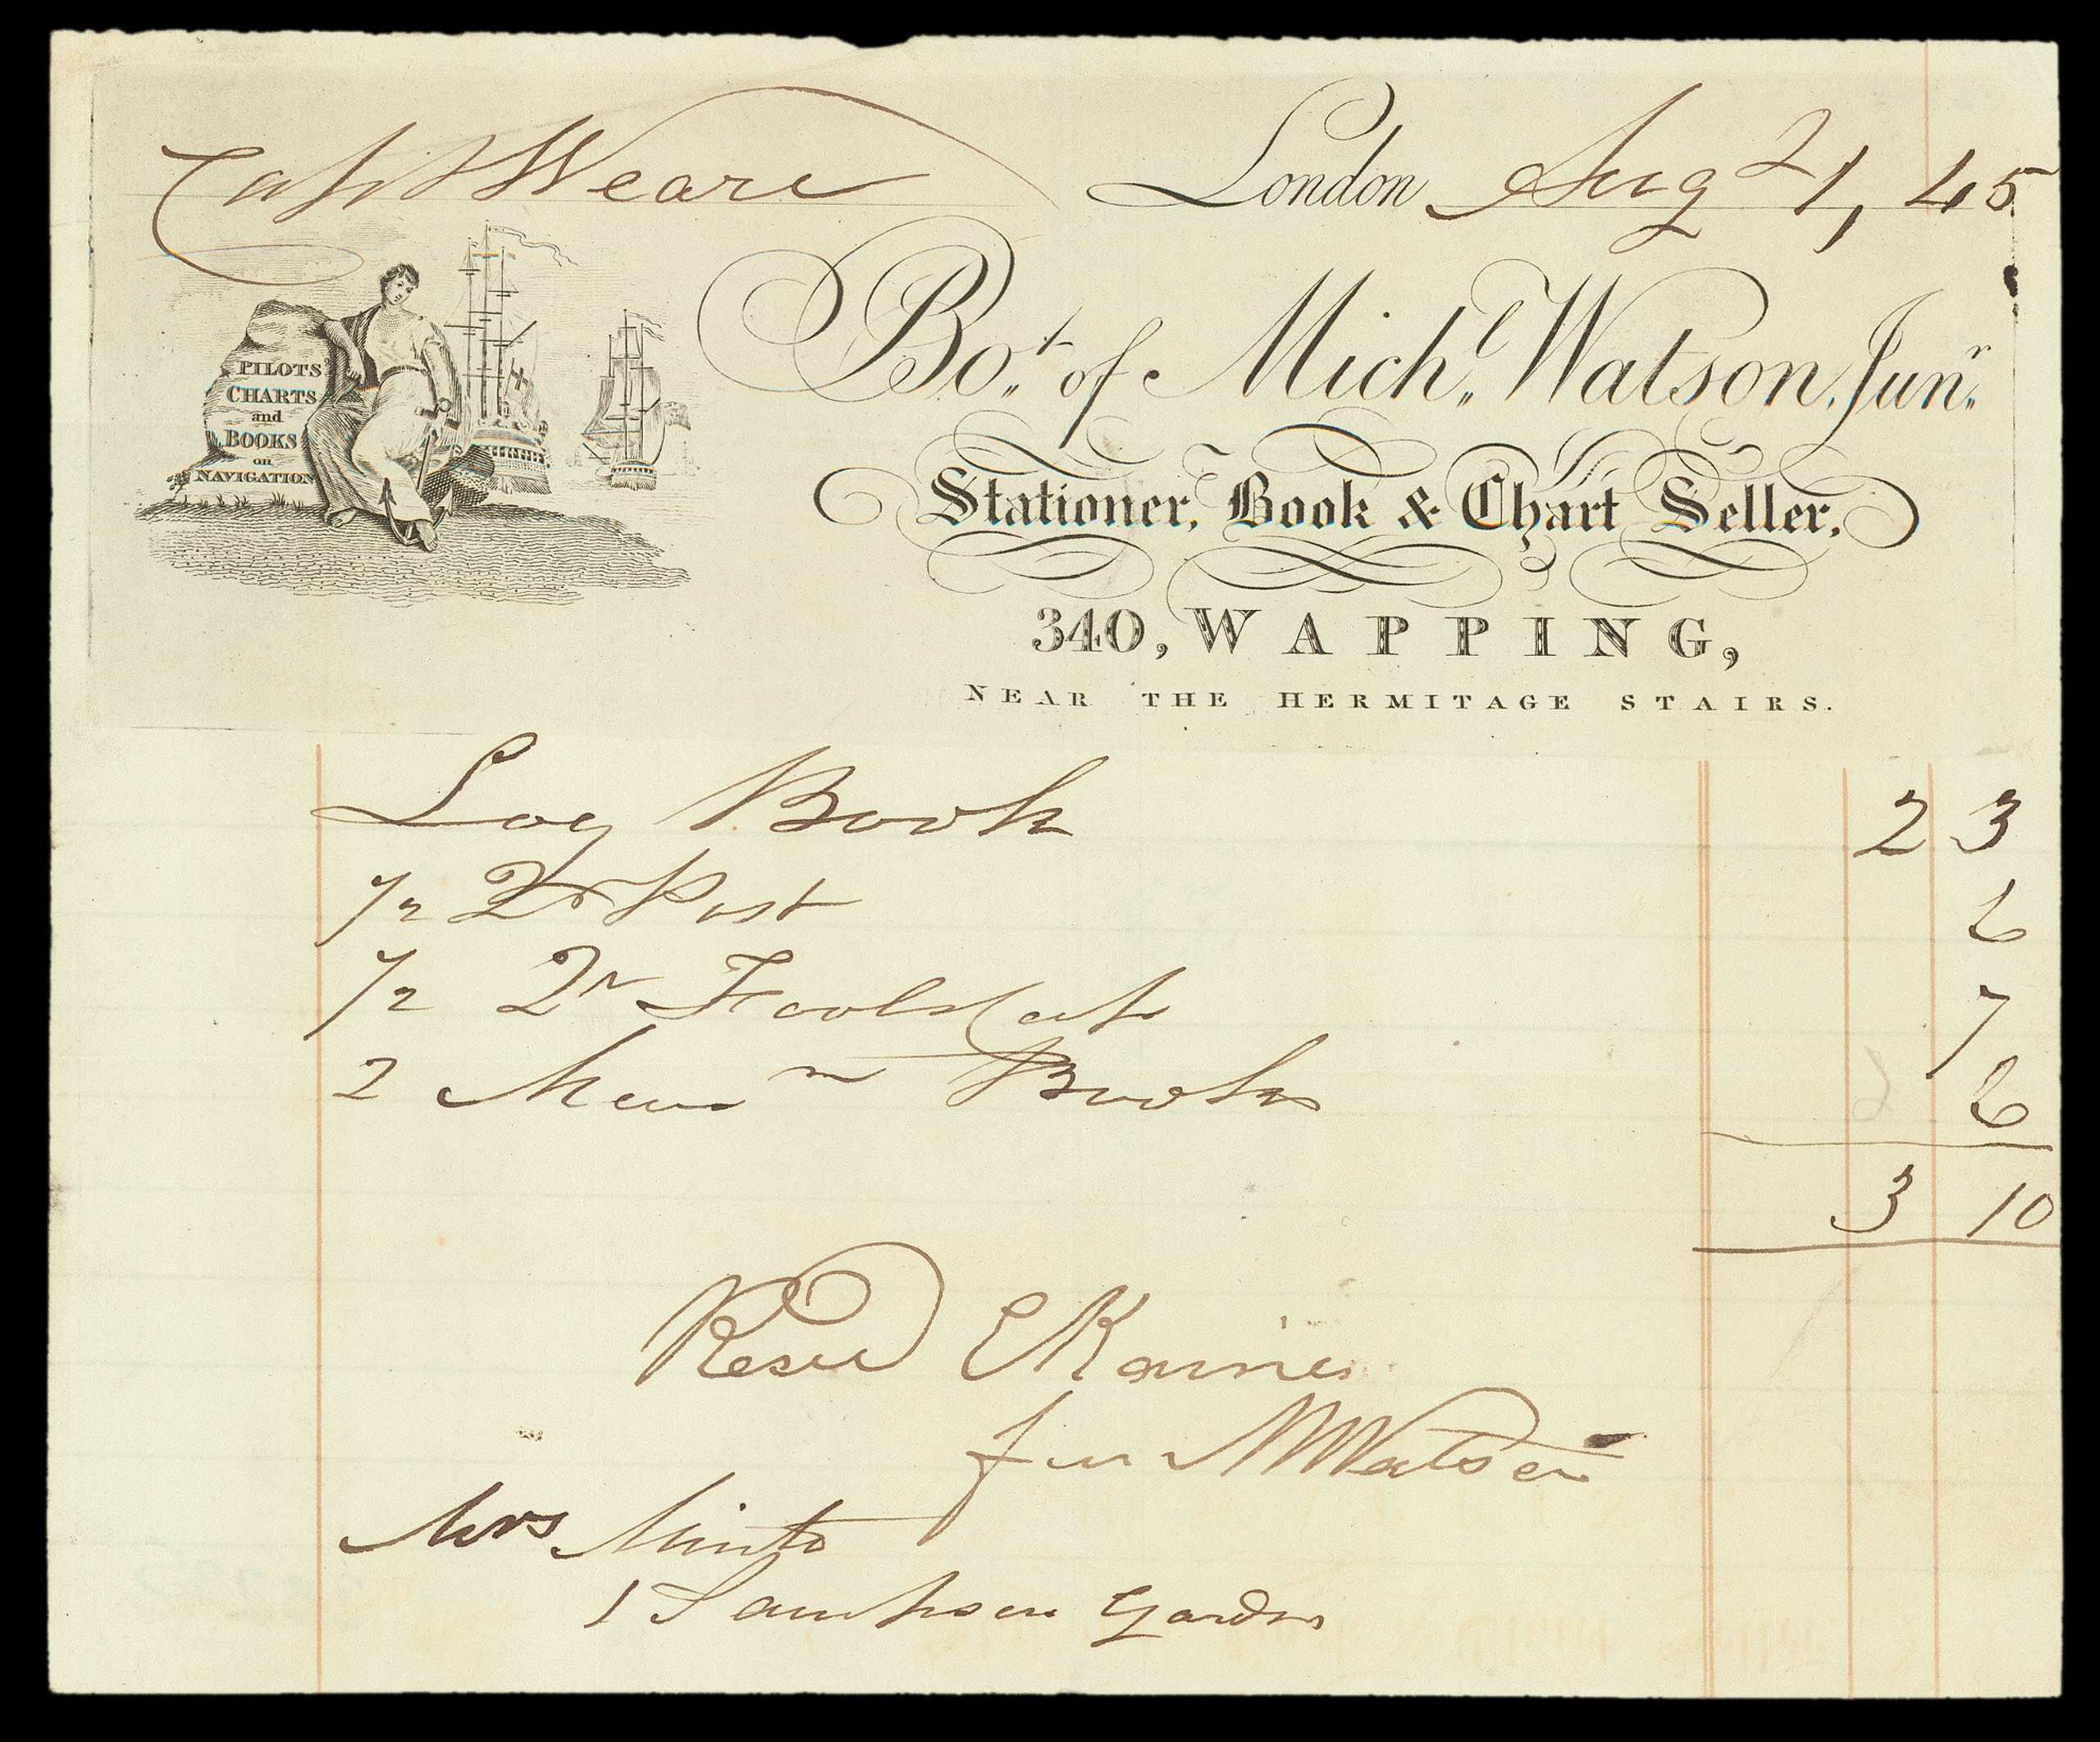 Capt Weare
London Aug 21, 45
PILOTS
CHARTS
and
BOOKS
on
NAVIGATION
Bo.t of Mich.l Watson, Jun.r
Stationer, Book & Chart Seller,
340, WAPPING,
NEAR THE HERMITAGE STAIRS.
Log Book 2 3
1/2 Qr Post 6
1/2 Qr Foolscap 7
2 Mem m Books 6
3 10
Recd E Kaines
for M Watson
Mrs Minto
1 Sampson Gardns